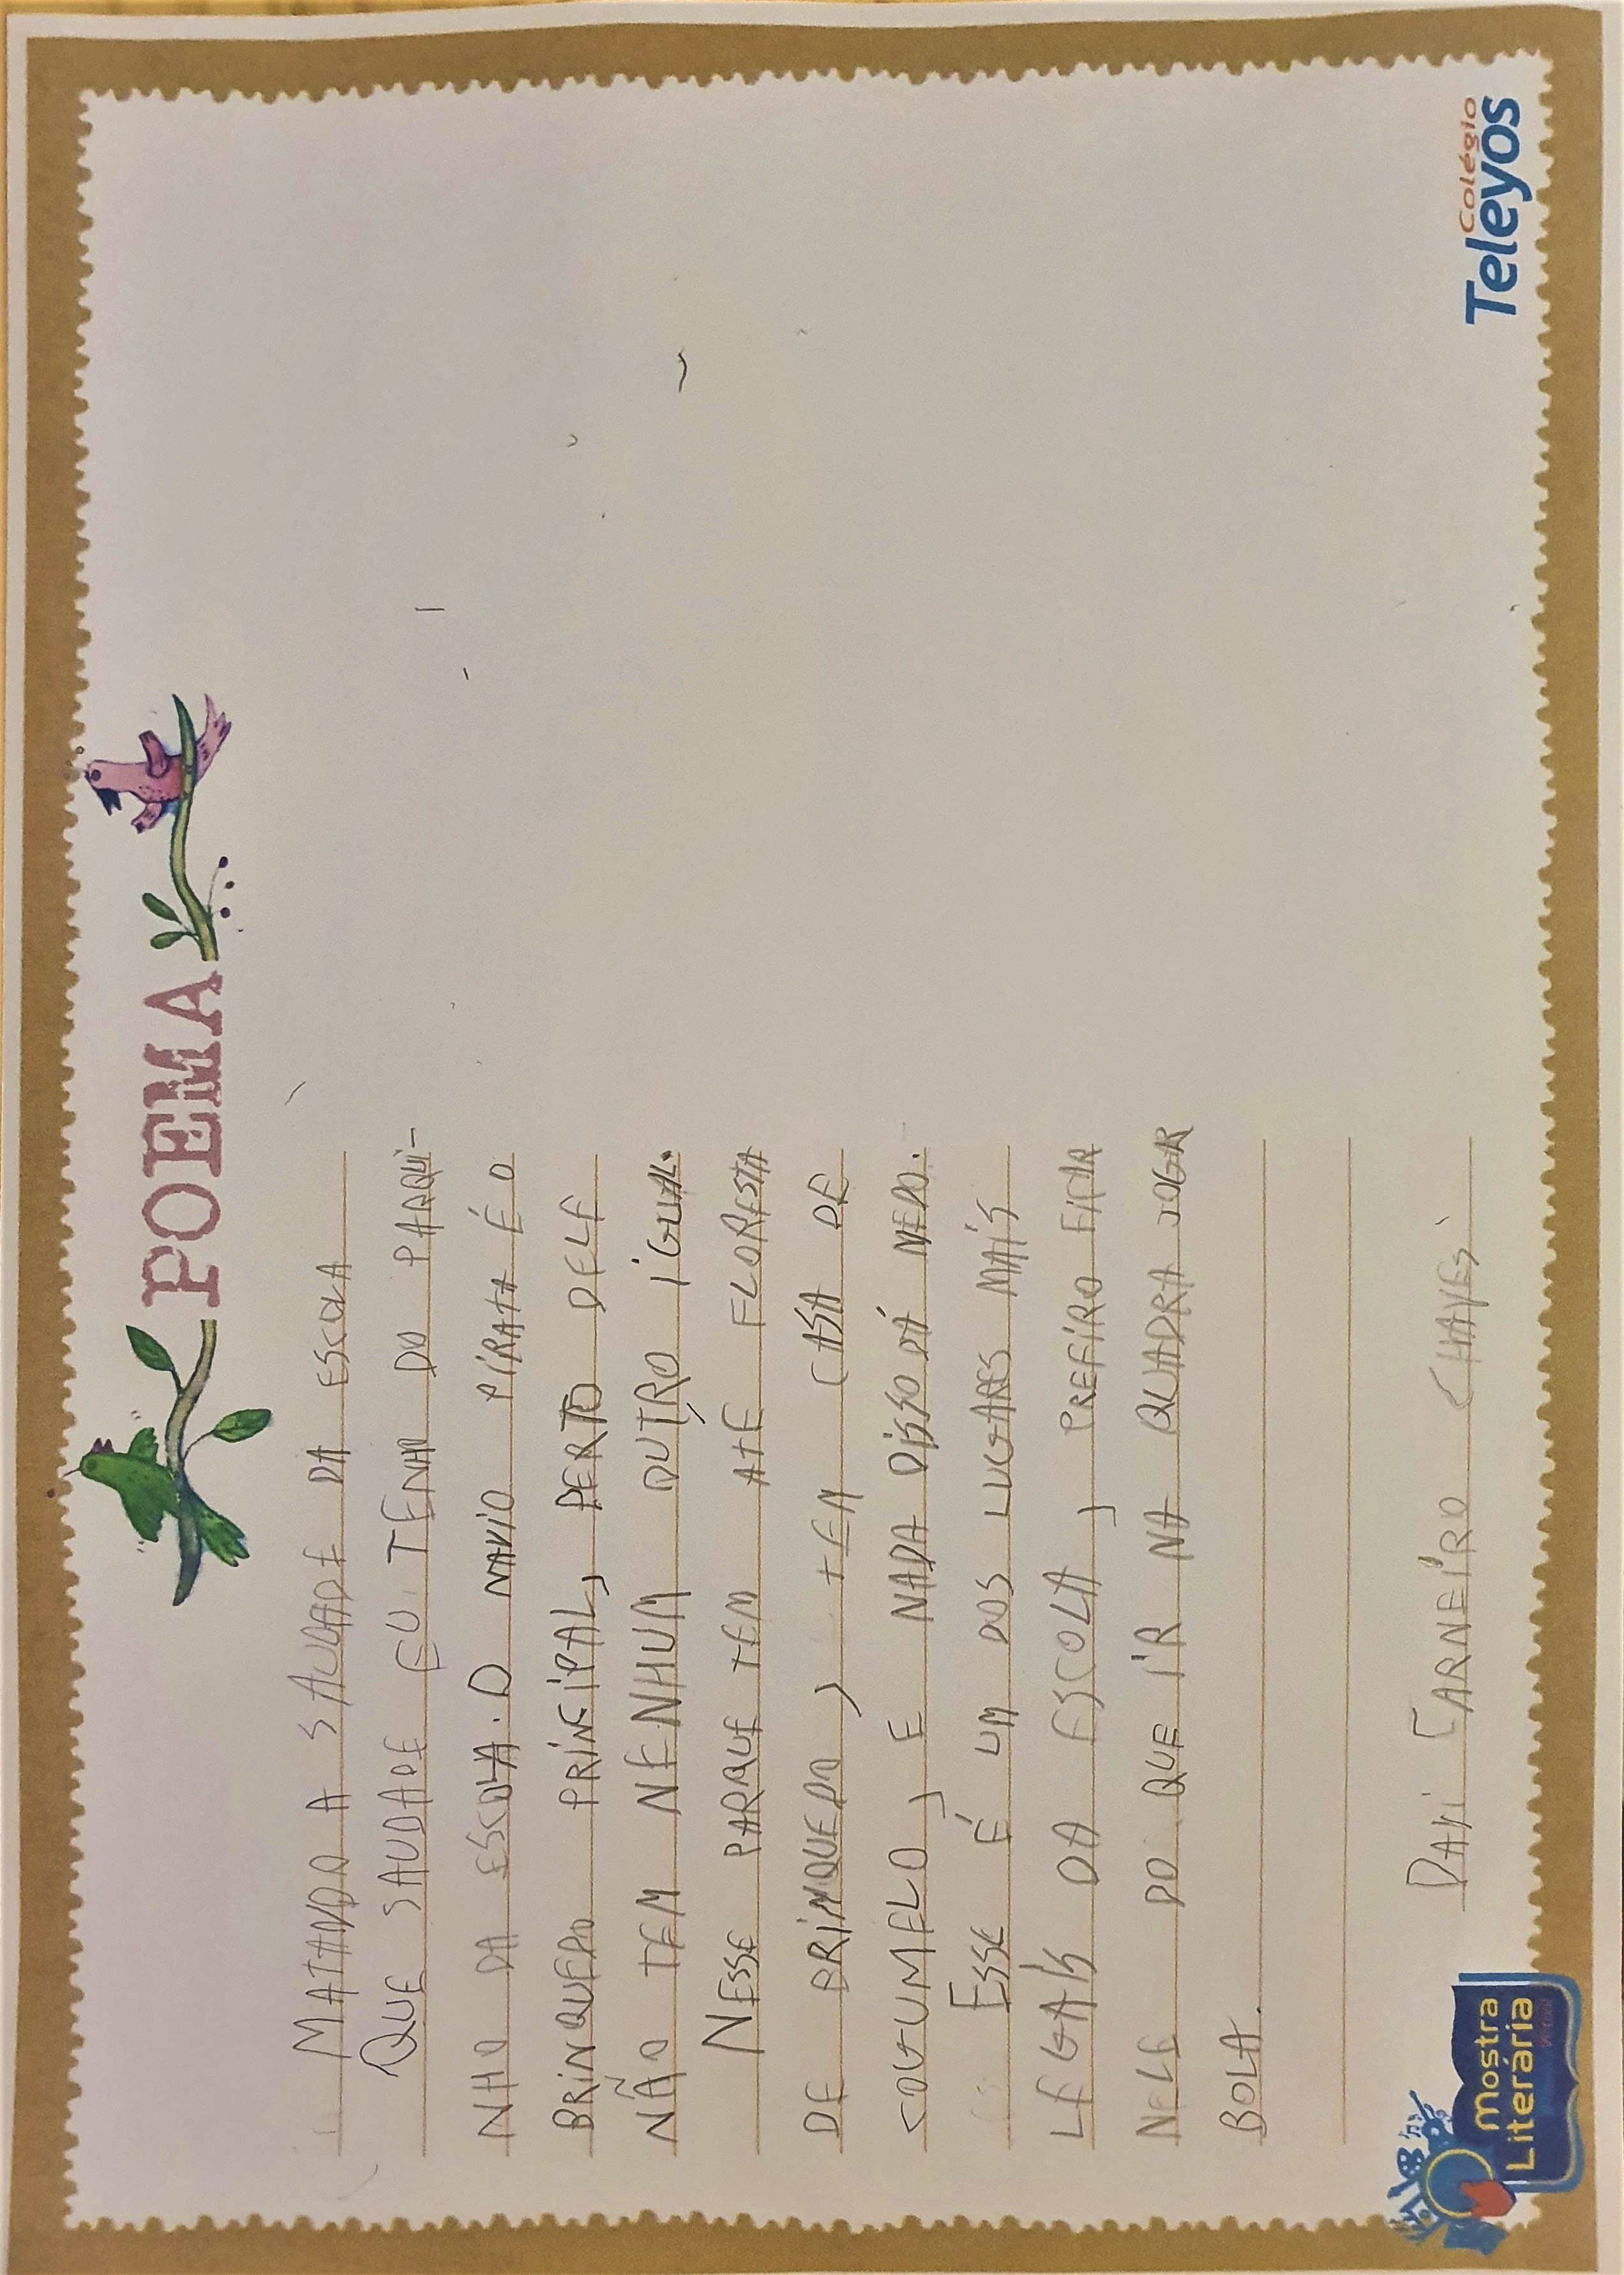 POEMA
MATANDO A SAUDADE DA ESCOLA
QUE SAUDADE EU TENHO DO PARQUI-
NHO DA ESCOLA. O NAVIO PIRATA É O
BRINQUEDO PRINCIPAL, PERTO DELE
NÃO TEM NENHUM OUTRO IGUAL.
NESSE PARQUE TEM ATÉ FLORESTA
DE BRINQUEDO, TEM CASA DE
COGUMELO, E NADA DISSO DÁ MEDO.
ESSE É UM DOS LUGARES MAIS
LEGAIS DA ESCOLA, PREFIRO FICAR
NELE DO QUE IR NA QUADRA JOGAR
BOLA.
DAVI CARNEIRO CHAVES
Mostra
Literária
Colégio
Teleyos